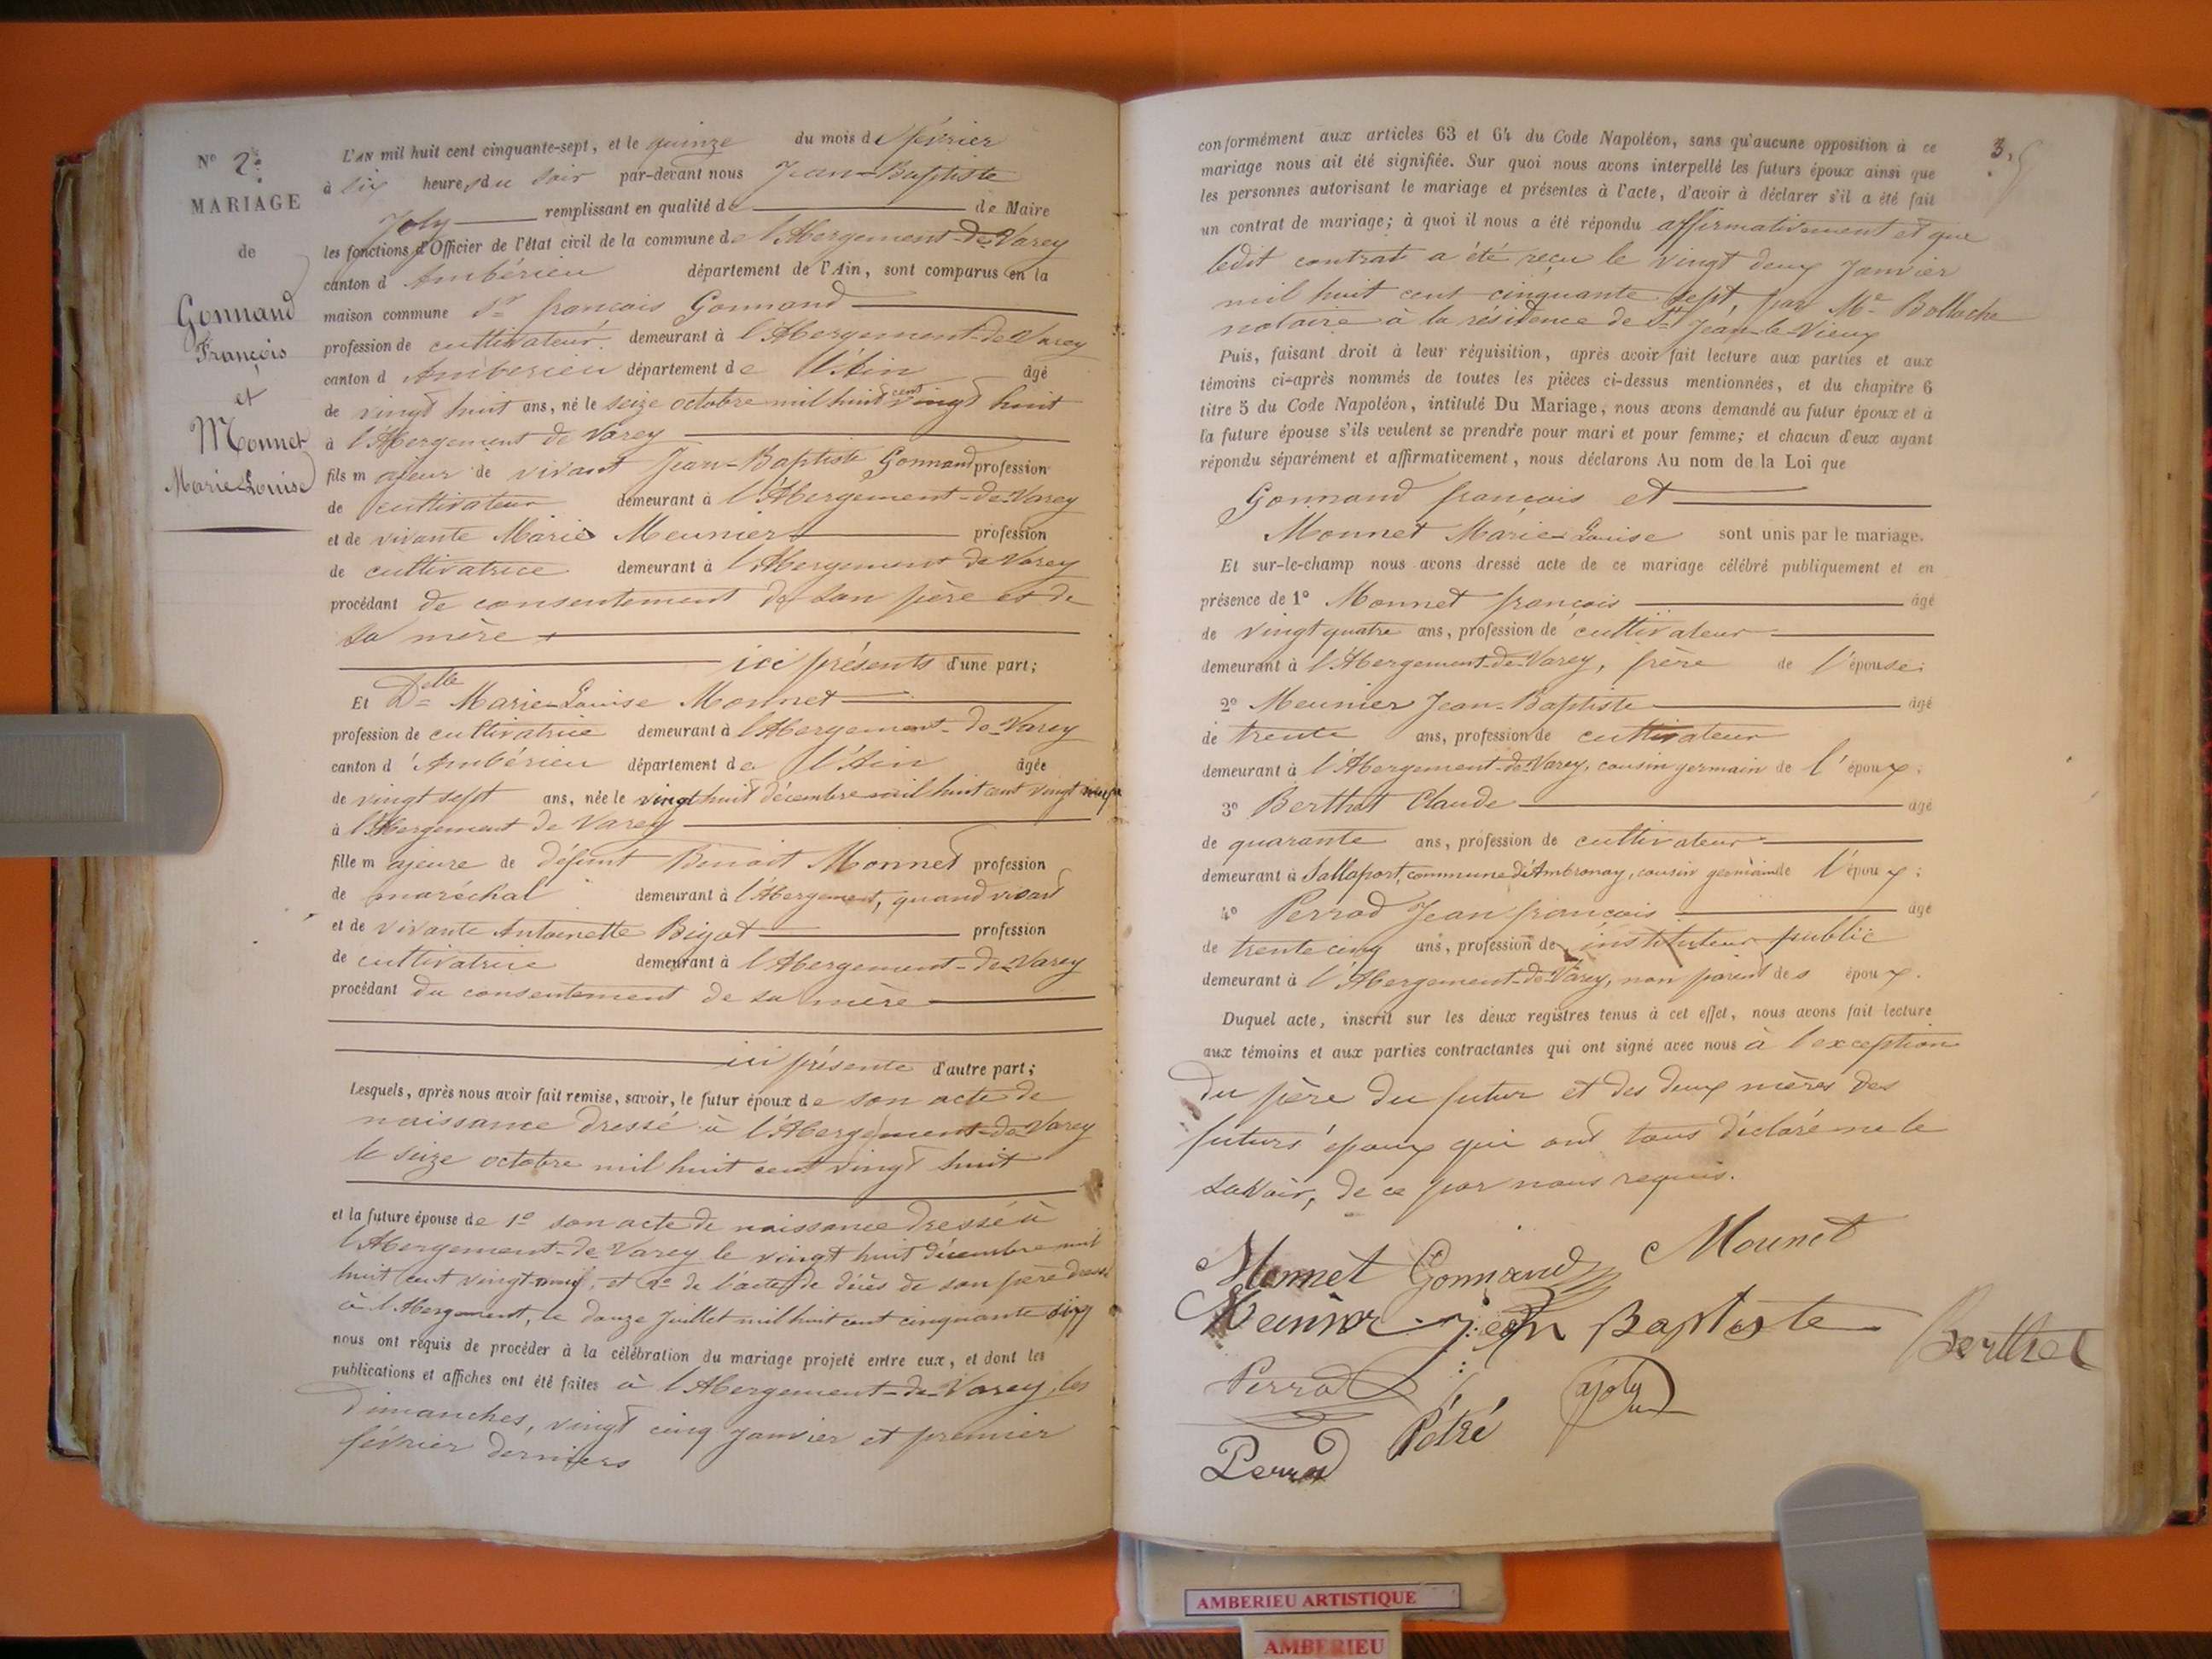 N° 2.
MARIAGE
de
Gonnand
François
et
Monnet
Marie-Louise
L'AN mil huit cent cinquante-sept, et le quinze du mois de février
à six heures du soir par-devant nous Jean-Baptiste
Joly remplissant en qualité de de Maire
les fonctions d'Officier de l'état civil de la commune de l'Abergement-de-Varey
canton d'Ambérieu département de l'Ain, sont comparus en la
maison commune Sr françois Gonnand
profession de cultivateur demeurant à l'Abergement-de-Varey
canton d'Ambérieu département de l'Ain âgé
de vingt huit ans, né le seize octobre mil huit cent vingt huit
à l'Abergement de Varey
fils majeur de vivant Jean-Baptiste Gonnand profession
de cultivateur demeurant à l'Abergement-de-Varey
et de vivante Marie Meunier profession
de cultivatrice demeurant à l'Abergement de Varey
procédant de consentement de son père et de
sa mère
ici présents d'une part;
Et Delle Marie-Louise Monnet
profession de cultivatrice demeurant à l'Abergement-de-Varey
canton d'Ambérieu département de l'Ain âgée
de vingt sept ans, née le vingt huit décembre mil huit cent vingt neuf
à l'Abergement de Varey
fille majeure de défunt Benoit Monnet profession
de maréchal demeurant à l'Abergement, quand vivait
et de vivante Antoinette Bigot profession
de cultivatrice demeurant à l'Abergement-de-Varey
procédant du consentement de sa mère
ici présente d'autre part;
Lesquels, après nous avoir fait remise, savoir, le futur époux de son acte de
naissance dressé à l'Abergement-de-Varey
le seize octobre mil huit cent vingt huit
et la future épouse de 1° son acte de naissance dressé à
l'Abergement-de-Varey le vingt huit décembre mil
huit cent vingt neuf, et 2° de l'acte de décès de son père dressé
à l'Abergement, le douze juillet mil huit cent cinquante six
nous ont requis de procéder à la célébration du mariage projeté entre eux, et dont les
publications et affiches ont été faites à l'Abergement-de-Varey, les
dimanches, vingt cinq janvier et premier
février derniers
3.
conformément aux articles 63 et 64 du Code Napoléon, sans qu'aucune opposition à ce
mariage nous ait été signifiée. Sur quoi nous avons interpellé les futurs époux ainsi que
les personnes autorisant le mariage et présentes à l'acte, d'avoir à déclarer s'il a été fait
un contrat de mariage; à quoi il nous a été répondu affirmativement et que
ledit contrat a été reçu le vingt deux janvier
mil huit cent cinquante sept, par Me Bollache
notaire à la résidence de St Jean-le-Vieux
Puis, faisant droit à leur réquisition, après avoir fait lecture aux parties et aux
témoins ci-après nommés de toutes les pièces ci-dessus mentionnées, et du chapitre 6
titre 5 du Code Napoléon, intitulé Du Mariage, nous avons demandé au futur époux et à
la future épouse s'ils veulent se prendre pour mari et pour femme; et chacun d'eux ayant
répondu séparément et affirmativement, nous déclarons Au nom de la Loi que
Gonnand françois et
Monnet Marie-Louise sont unis par le mariage.
Et sur-le-champ nous avons dressé acte de ce mariage célébré publiquement et en
présence de 1° Monnet françois âgé
de vingt quatre ans, profession de cultivateur
demeurant à l'Abergement-de-Varey, frère de l'épouse;
2° Meunier Jean-Baptiste âgé
de trente ans, profession de cultivateur
demeurant à l'Abergement-de-Varey, cousin germain de l'époux;
3° Berthet Claude âgé
de quarante ans, profession de cultivateur
demeurant à Sallaport, commune d'Ambronay, cousin germain de l'époux;
4° Perrod Jean françois âgé
de trente cinq ans, profession de instituteur public
demeurant à l'Abergement-de-Varey, non parent des époux.
Duquel acte, inscrit sur les deux registres tenus à cet effet, nous avons fait lecture
aux témoins et aux parties contractantes qui ont signé avec nous à l'exception
du père du futur et des deux mères des
futurs époux qui ont tous déclaré ne le
savoir, de ce par nous requis.
Monnet Gonnand Monnet
Meunier Jean Baptiste
Berthet
Perrod Joly
Pétré
Perrod
AMBERIEU ARTISTIQUE
AMBERIEU